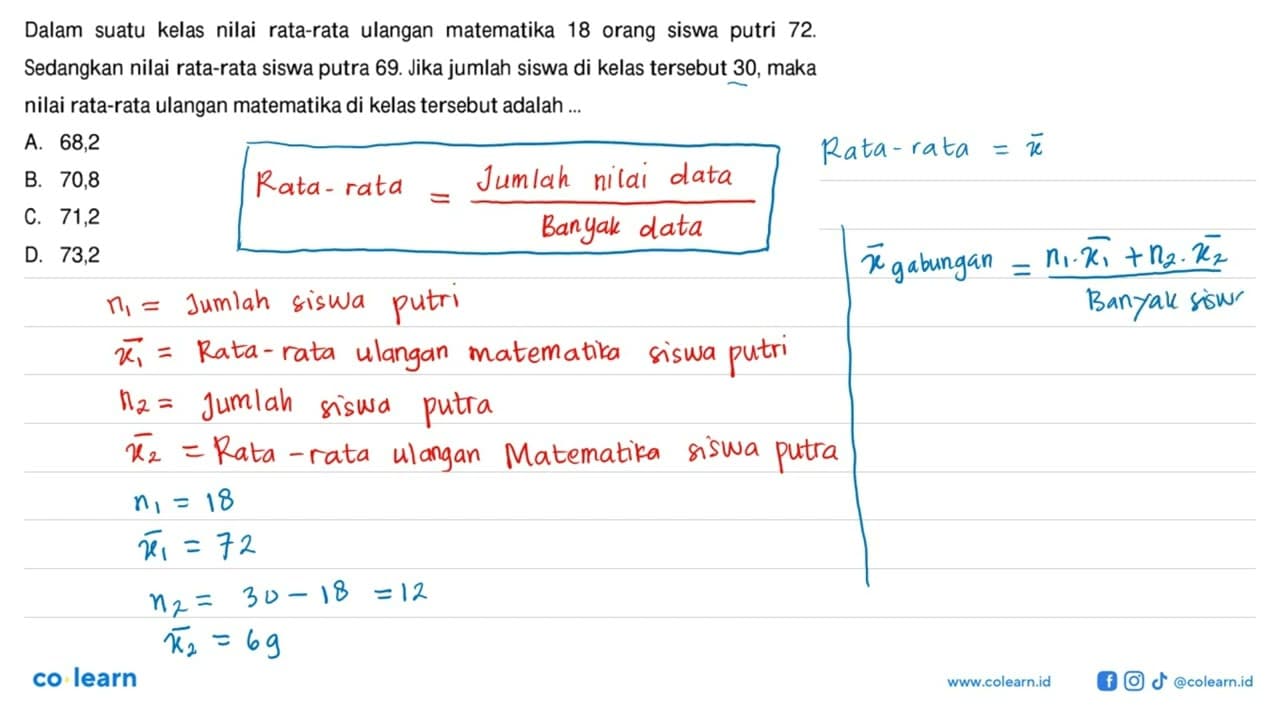 Dalam suatu kelas nilai rata-rata ulangan matematika 18 orang siswa putri 72.
Sedangkan nilai rata-rata siswa putra 69. Jika jumlah siswa di kelas tersebut 30, maka
nilai rata-rata ulangan matematika di kelas tersebut adalah ...
A. 68,2
B. 70,8
C. 71,2
D. 73,2
Rata-rata = Jumlah nilai data
Banyak data
Rata-rata = x̄
x̄ gabungan = n₁.x̄₁ + n₂.x̄₂
Banyak sisw
n₁ = Jumlah siswa putri
x̄₁ = Rata-rata ulangan matematika siswa putri
n₂ = Jumlah siswa putra
x̄₂ = Rata-rata ulangan Matematika siswa putra
n₁ = 18
x̄₁ = 72
n₂ = 30 - 18 = 12
x̄₂ = 69
co learn
www.colearn.id
@colearn.id